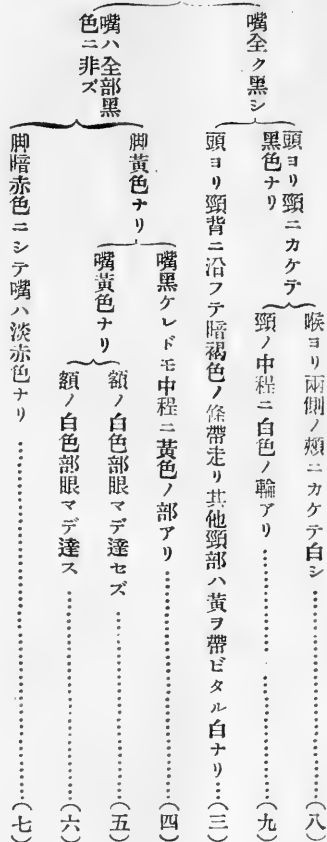 嘴全ク黑シ
頭ヨリ頸ニカケテ
黑色ナリ
喉ヨリ兩側ノ頰ニカケテ白シ……(八)
頸ノ中程ニ白色ノ輪アリ……(九)
頭ヨリ頸背ニ沿フテ暗褐色ノ條帶走リ其他頸部ハ黃ヲ帶ビタル白ナリ……(三)
嘴ハ全部黑
色ニ非ズ
脚黃色ナリ
嘴黑ケレドモ中程ニ黃色ノ部アリ……(四)
嘴黃色ナリ
額ノ白色部眼マデ達セズ……(五)
額ノ白色部眼マデ達ス……(六)
脚暗赤色ニシテ嘴ハ淡赤色ナリ……(七)